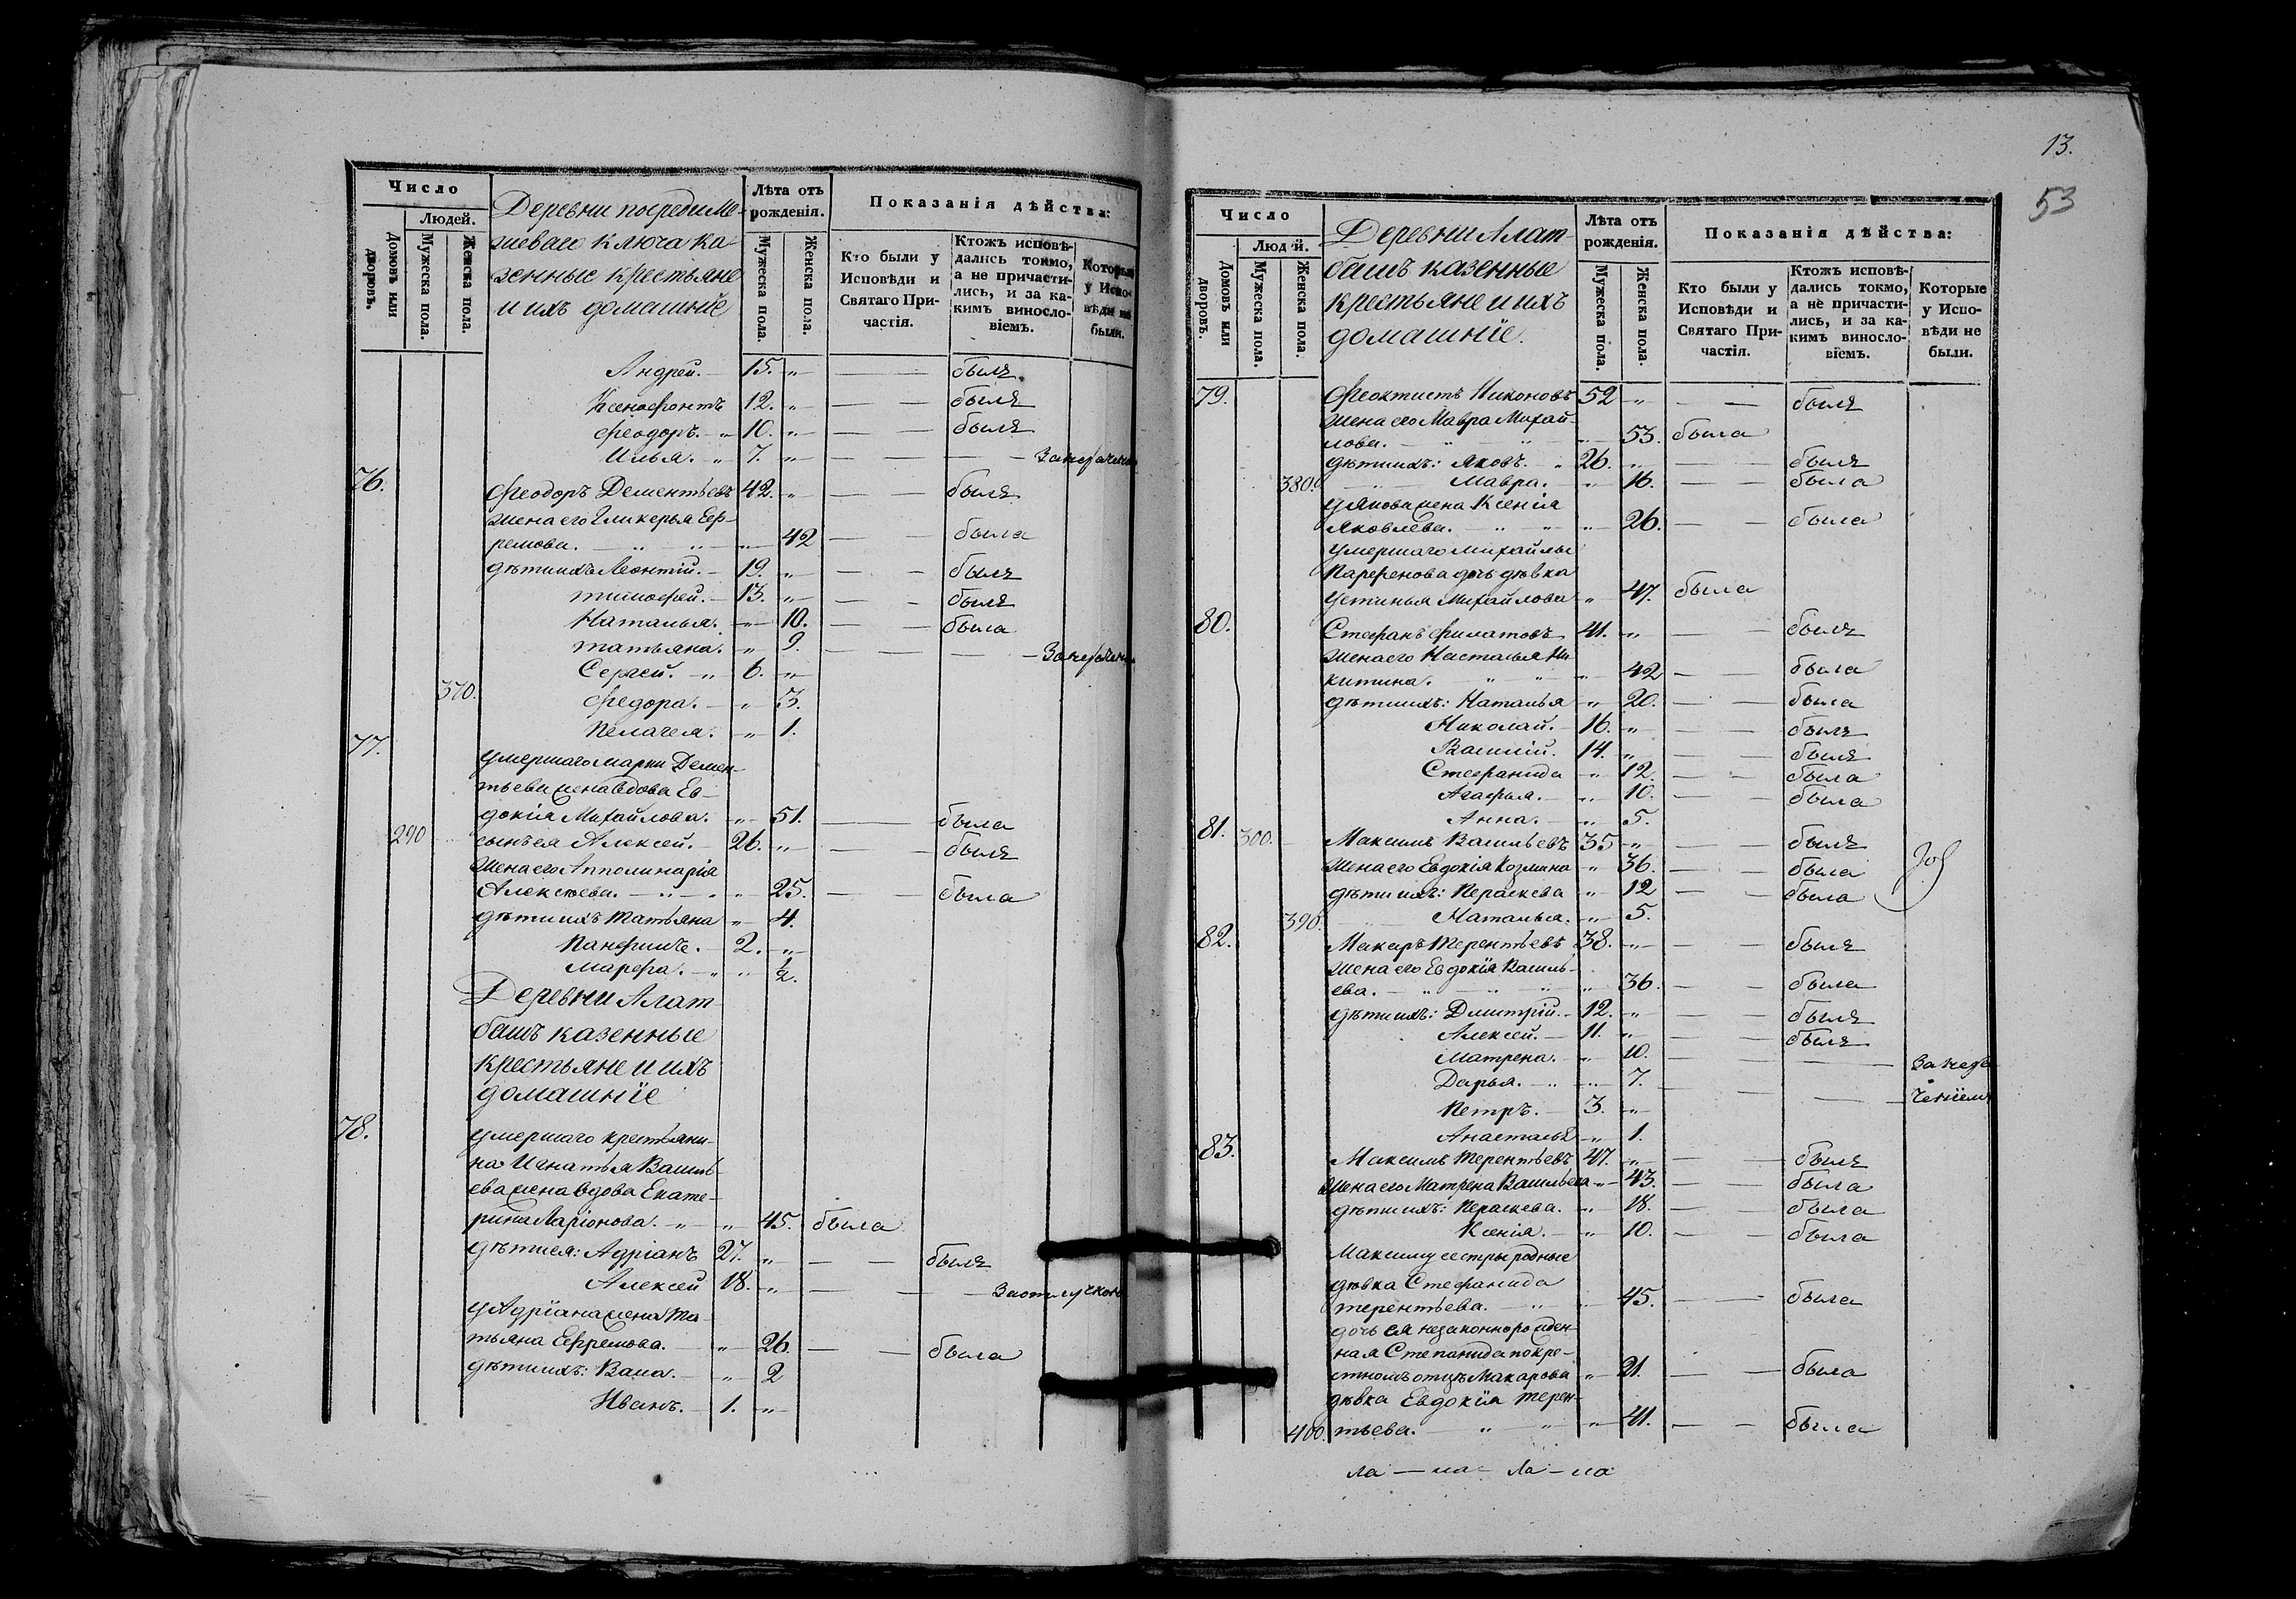 Число
Людей.
Домовъ или дворовъ.
Мужеска пола.
Женска пола.
Деревни
ключа ка-
зенные крестьяне
и ихъ домашніе
Лѣта отъ рожденія.
Мужеска пола.
Женска пола.
Показанія дѣйства:
Кто были у Исповѣди и Святаго Причастія.
Ктожъ исповѣ-
дались токмо,
а не причасти-
лись, и за ка-
кимъ виносло-
віемъ.
Которые
у Испо-
вѣди не
были.
Андрей. 15. „ — — былъ
Ксенофонтъ 12. „ — — былъ
Феодоръ. „ 10. „ — — былъ
Илья. „ 7. „ — — —
76. Феодоръ Дементьевъ 42. „ — — былъ
жена его Гликерья Еф-
ремова. „ „ „ 42 — — была
дѣти ихъ Леонтій. 19. „ — — былъ
Тимофей. 13. „ — — былъ
Наталья. „ 10. — — была
Татьяна. „ 9. — — —
Сергей. „ 6. „
370. Федора. „ 3.
Пелагея. „ 1.
77. Умершаго Марки Демен-
тьева жена вдова Ев-
докія Михайлова. „ 51. — была
290 сынъ ея Алексей. 26. „ — — былъ
жена его Апполинарія
Алексѣева. „ „ 25. — — была
дѣти ихъ Татьяна „ 4.
Панфилъ. 2. „
Марфа. „ „ ½.
Деревни Алат-
башъ казенные
крестьяне и ихъ
домашніе
78. Умершаго крестьяни-
на Игнатья Василь-
ева жена вдова Екате-
рина Ларіонова. „ „ 45. была
дѣти ея: Адріанъ 27. „ — — былъ
Алексей 18. „ — — — За отлучкою
у Адріана жена Та-
тьяна Ефремова. „ 26. — — была
дѣти ихъ: Васа. „ 2
Иванъ. 1. „
13.
53
Число
Людей.
Домовъ или дворовъ.
Мужеска пола.
Женска пола.
Деревни Алат-
башъ казенные
крестьяне и ихъ
домашніе.
Лѣта отъ рожденія.
Мужеска пола.
Женска пола.
Показанія дѣйства:
Кто были у Исповѣди и Святаго Причастія.
Ктожъ исповѣ-
дались токмо,
а не причасти-
лись, и за ка-
кимъ виносло-
віемъ.
Которые
у Испо-
вѣди не
были.
79. Феоктистъ Никоновъ 52 „ — — былъ
жена его Мавра Михай-
лова. „ „ „ 53. была
дѣти ихъ: Яковъ. „ 26. „ — — былъ
380. Мавра. „ 16. — — была
у Якова жена Ксенія
Яковлева. „ „ „ 26. — — была
Умершаго Михайлы
Парфенова дочь дѣвка
Устинья Михайлова „ 47. была
80. Стефанъ Филатовъ 41. „ — — былъ
жена его Настасья Ни-
китина. „ „ „ 42 — — была
дѣти ихъ: Наталья „ 20. — — была
Николай. 16. „ — — былъ
Василій. 14. „ — — былъ
Стефанида „ 12. — — была
Агафья. „ 10. — — была
Анна. „ 5.
81. 300. Максимъ Васильевъ 35 „ — — былъ
жена его Евдокія Козмина „ 36. — — была
дѣти ихъ: Параскева „ 12 — — была
390. Наталья. „ 5.
82. Макаръ Терентьевъ 38. „ — — былъ
жена его Евдокія Василь-
ева. „ „ „ „ 36. — — была
дѣти ихъ: Дмитрій. 12. „ — — былъ
Алексей. 11. „ — — былъ
Матрена. „ 10. — — —
Дарья. „ „ 7. — — —
Петръ. 3. „
Анастасья „ 1.
83. Максимъ Терентьевъ 47. „ — — былъ
жена его Матрена Васильева „ 43. — — была
дѣти ихъ: Параскева. „ 18. — — была
Ксенія. „ 10. — — была
Максиму сестры родные
дѣвка Стефанида
Терентьева. „ „ 45. — — была
дочь ея незаконнорожден-
ная Степанида по кре-
стномъ отцѣ Макарова „ 21. — — была
дѣвка Евдокія Терен-
400. тьева. „ „ „ 41. — — была